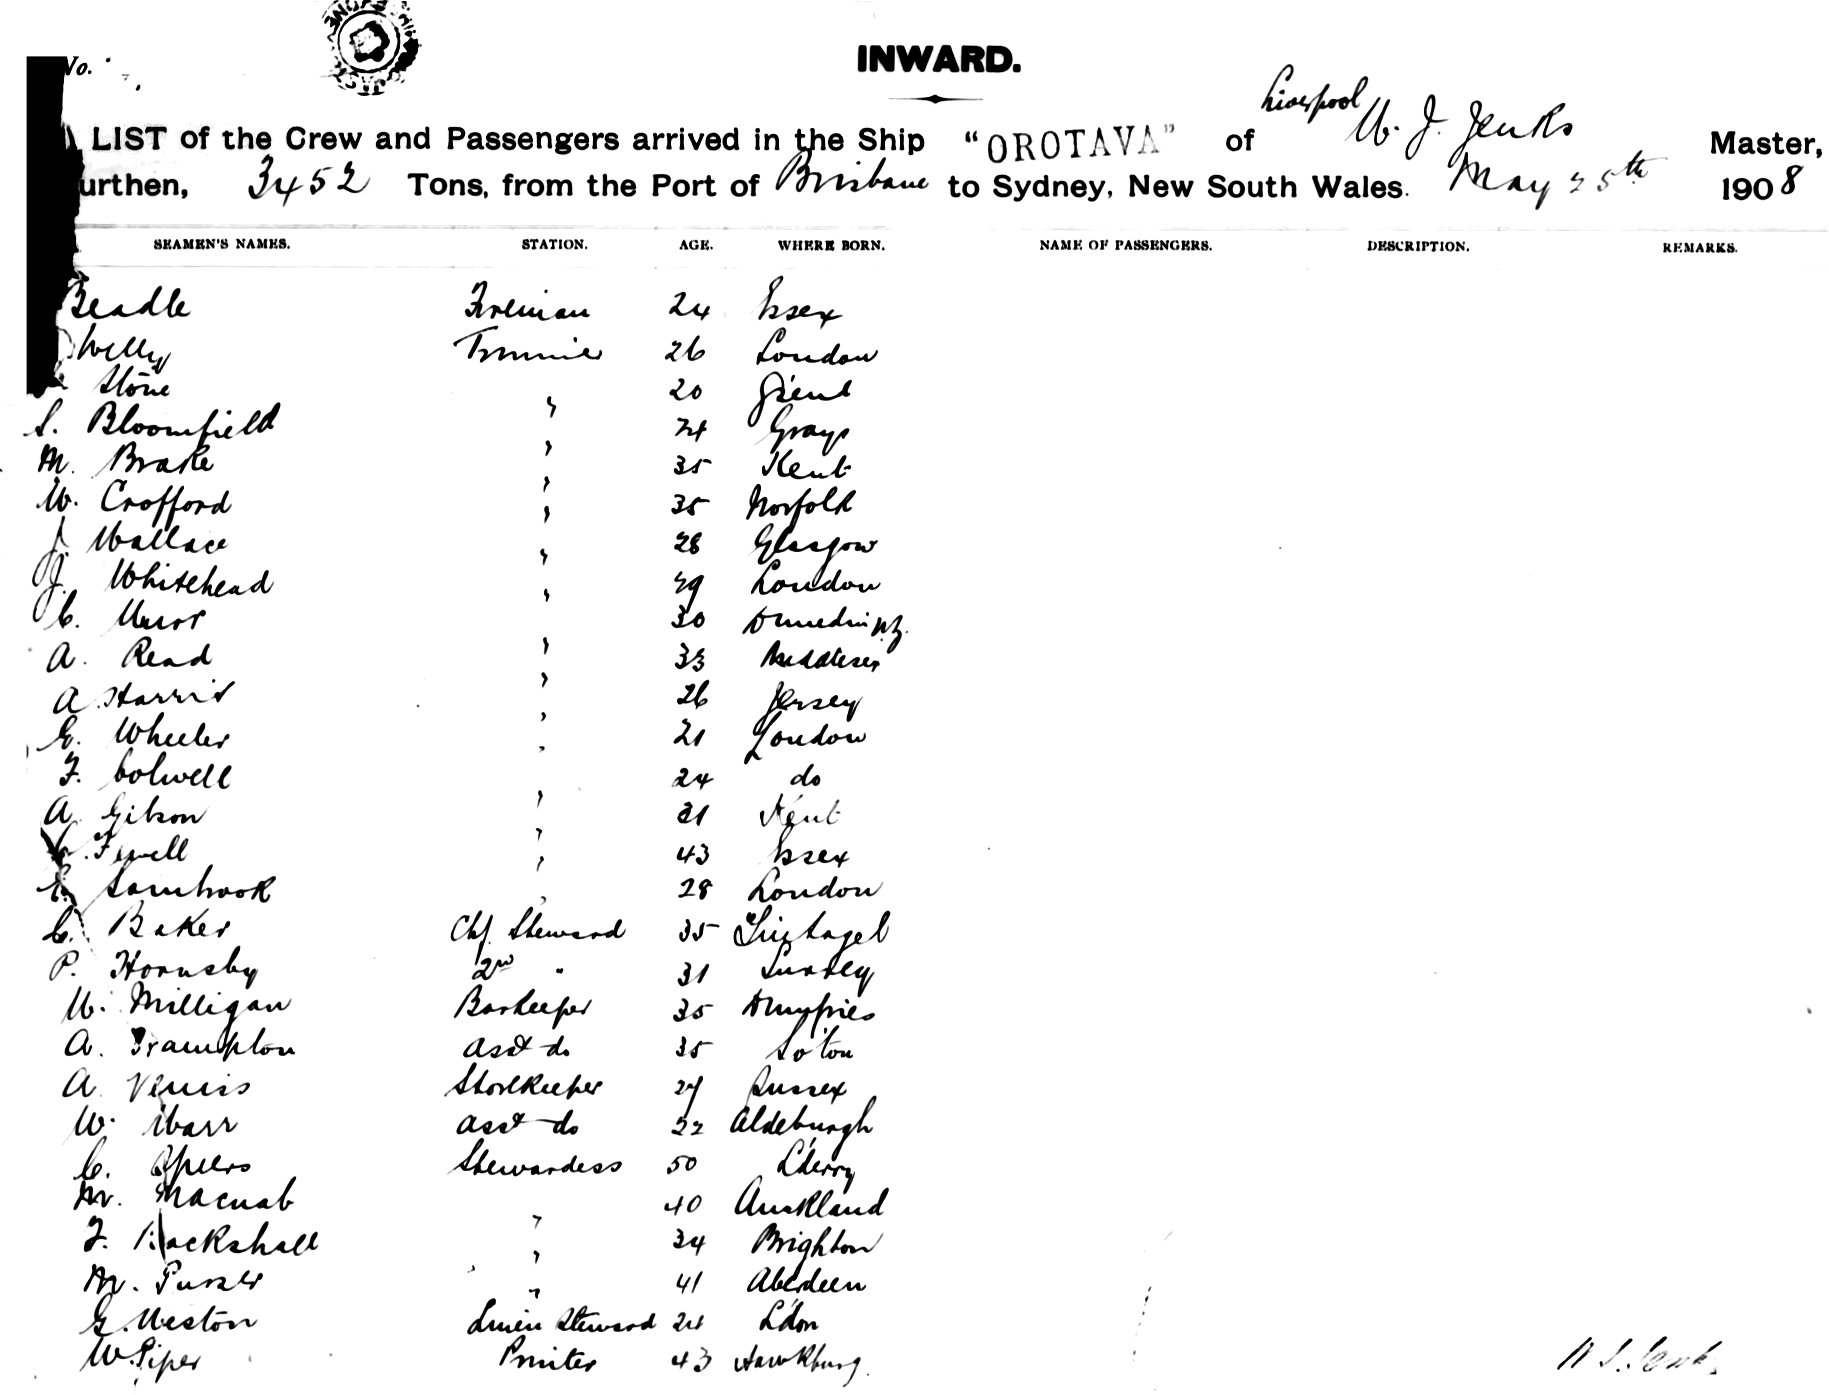 No.
INWARD.
LIST of the Crew and Passengers arrived in the Ship "OROTAVA" of Liverpool W. J. Jenks Master,
urthen, 3452 Tons, from the Port of Brisbane to Sydney, New South Wales. May 25th 1908
SEAMEN'S NAMES. STATION. AGE. WHERE BORN. NAME OF PASSENGERS. DESCRIPTION. REMARKS.
Beadle Fireman 24 Essex
Welly Trimmer 26 London
Stone " 20
S. Bloomfield " 24 Grays
M. Brake " 35 Kent
W. Crofford " 35 Norfolk
J. Wallace " 28 Glasgow
J. Whitehead " 29 London
C. Muor " 30 Dunedin N.Z.
A. Read " 33 Middlesex
A. Harris " 26 Jersey
E. Wheeler " 21 London
F. Colwell " 24 do
A. Gibson " 31 Kent
C. Fewell " 43 Essex
E. Sambrook " 28 London
C. Baker Chf. Steward 35 Tintagel
P. Hornsby 2nd " 31 Surrey
W. Milligan Barkeeper 35 Dumfries
A. Frampton asst do 35 So'ton
A. Veniss Storekeeper 27 Sussex
W. Warr asst do 22 Aldeburgh
C. Spiers Stewardess 50 L'derry
M. Macnab " 40 Auckland
F. Hackshall " 34 Brighton
M. Purser " 41 Aberdeen
G. Weston Linen Steward 24 L'don
W. Piper Printer 43 Hawkburg.
W. J. Jenks